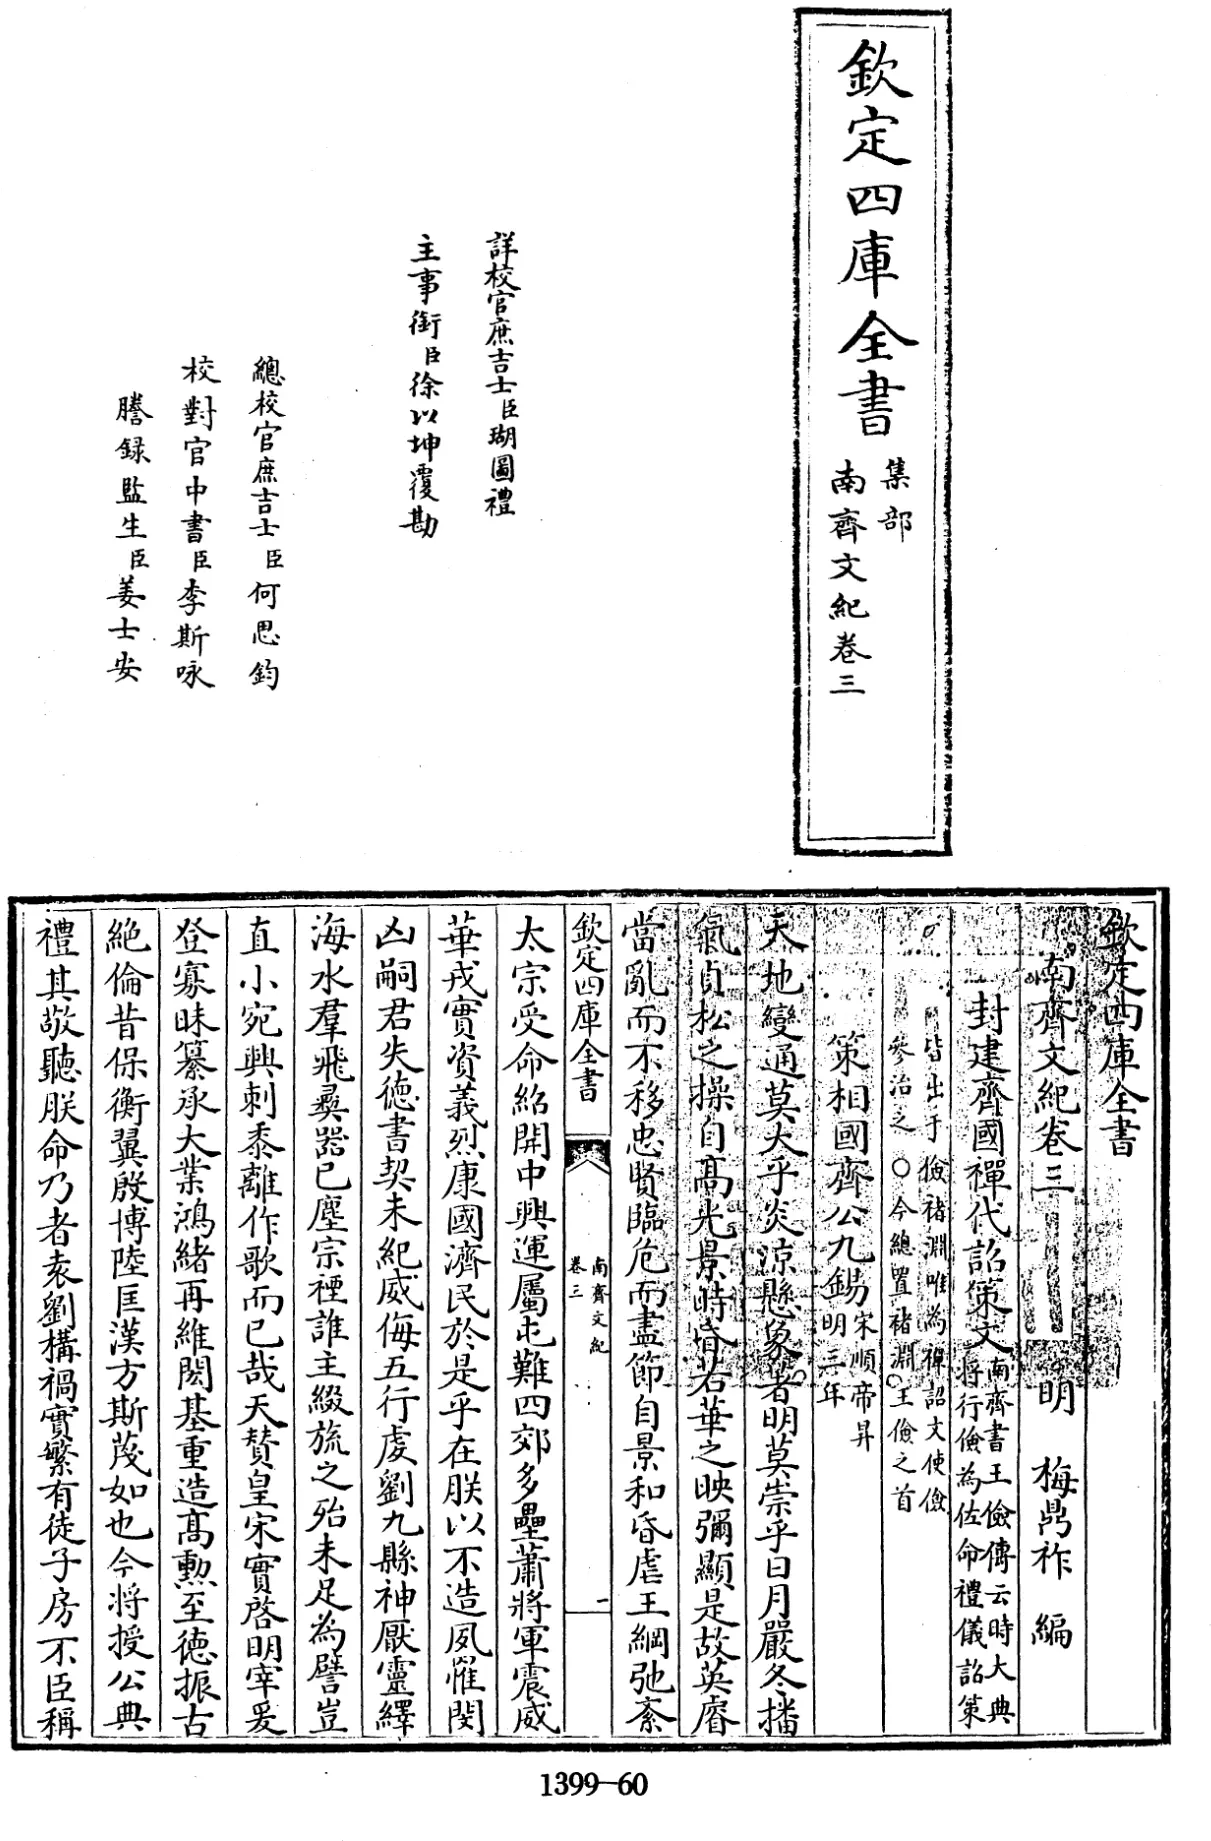 欽定四庫全書
集部
南齊文紀卷三
詳校官庶吉士臣瑚圖禮
主事銜臣徐以坤覆勘
總校官庶吉士臣何思鈞
校對官中書臣李斯咏
謄録監生臣姜士安
欽定四庫全書
南齊文紀卷三 明 梅鼎祚 編
封建齊國禪代詔策文南齊書王儉傳云時大典
將行儉為佐命禮儀詔策
皆出于儉褚淵唯為禪詔文使儉
參治之○今總置褚淵王儉之首
策相國齊公九錫宋順帝昇
明三年
天地變通莫大乎炎涼懸象著明莫崇乎日月嚴冬播
氣貞松之操自高光景時昏若華之映彌顯是故英睿
當亂而不移忠賢臨危而盡節自景和昏虐王綱弛紊
欽定四庫全書
南齊文紀
卷三
一
太宗受命紹開中興運屬屯難四郊多壘蕭將軍震威
華戎實資義烈康國濟民於是乎在朕以不造夙罹閔
凶嗣君失德書契未紀威侮五行虔劉九縣神厭靈繹
海水羣飛彞器已塵宗禋誰主綴旒之殆未足為譬豈
直小宛興刺黍離作歌而已哉天賛皇宋實啓明宰爰
登寡昧纂承大業鴻緒再維閎基重造髙勲至德振古
絶倫昔保衡翼殷博陸匡漢方斯蔑如也今將授公典
禮其敬聽朕命乃者袁劉構禍實繁有徒子房不臣稱
1399-60